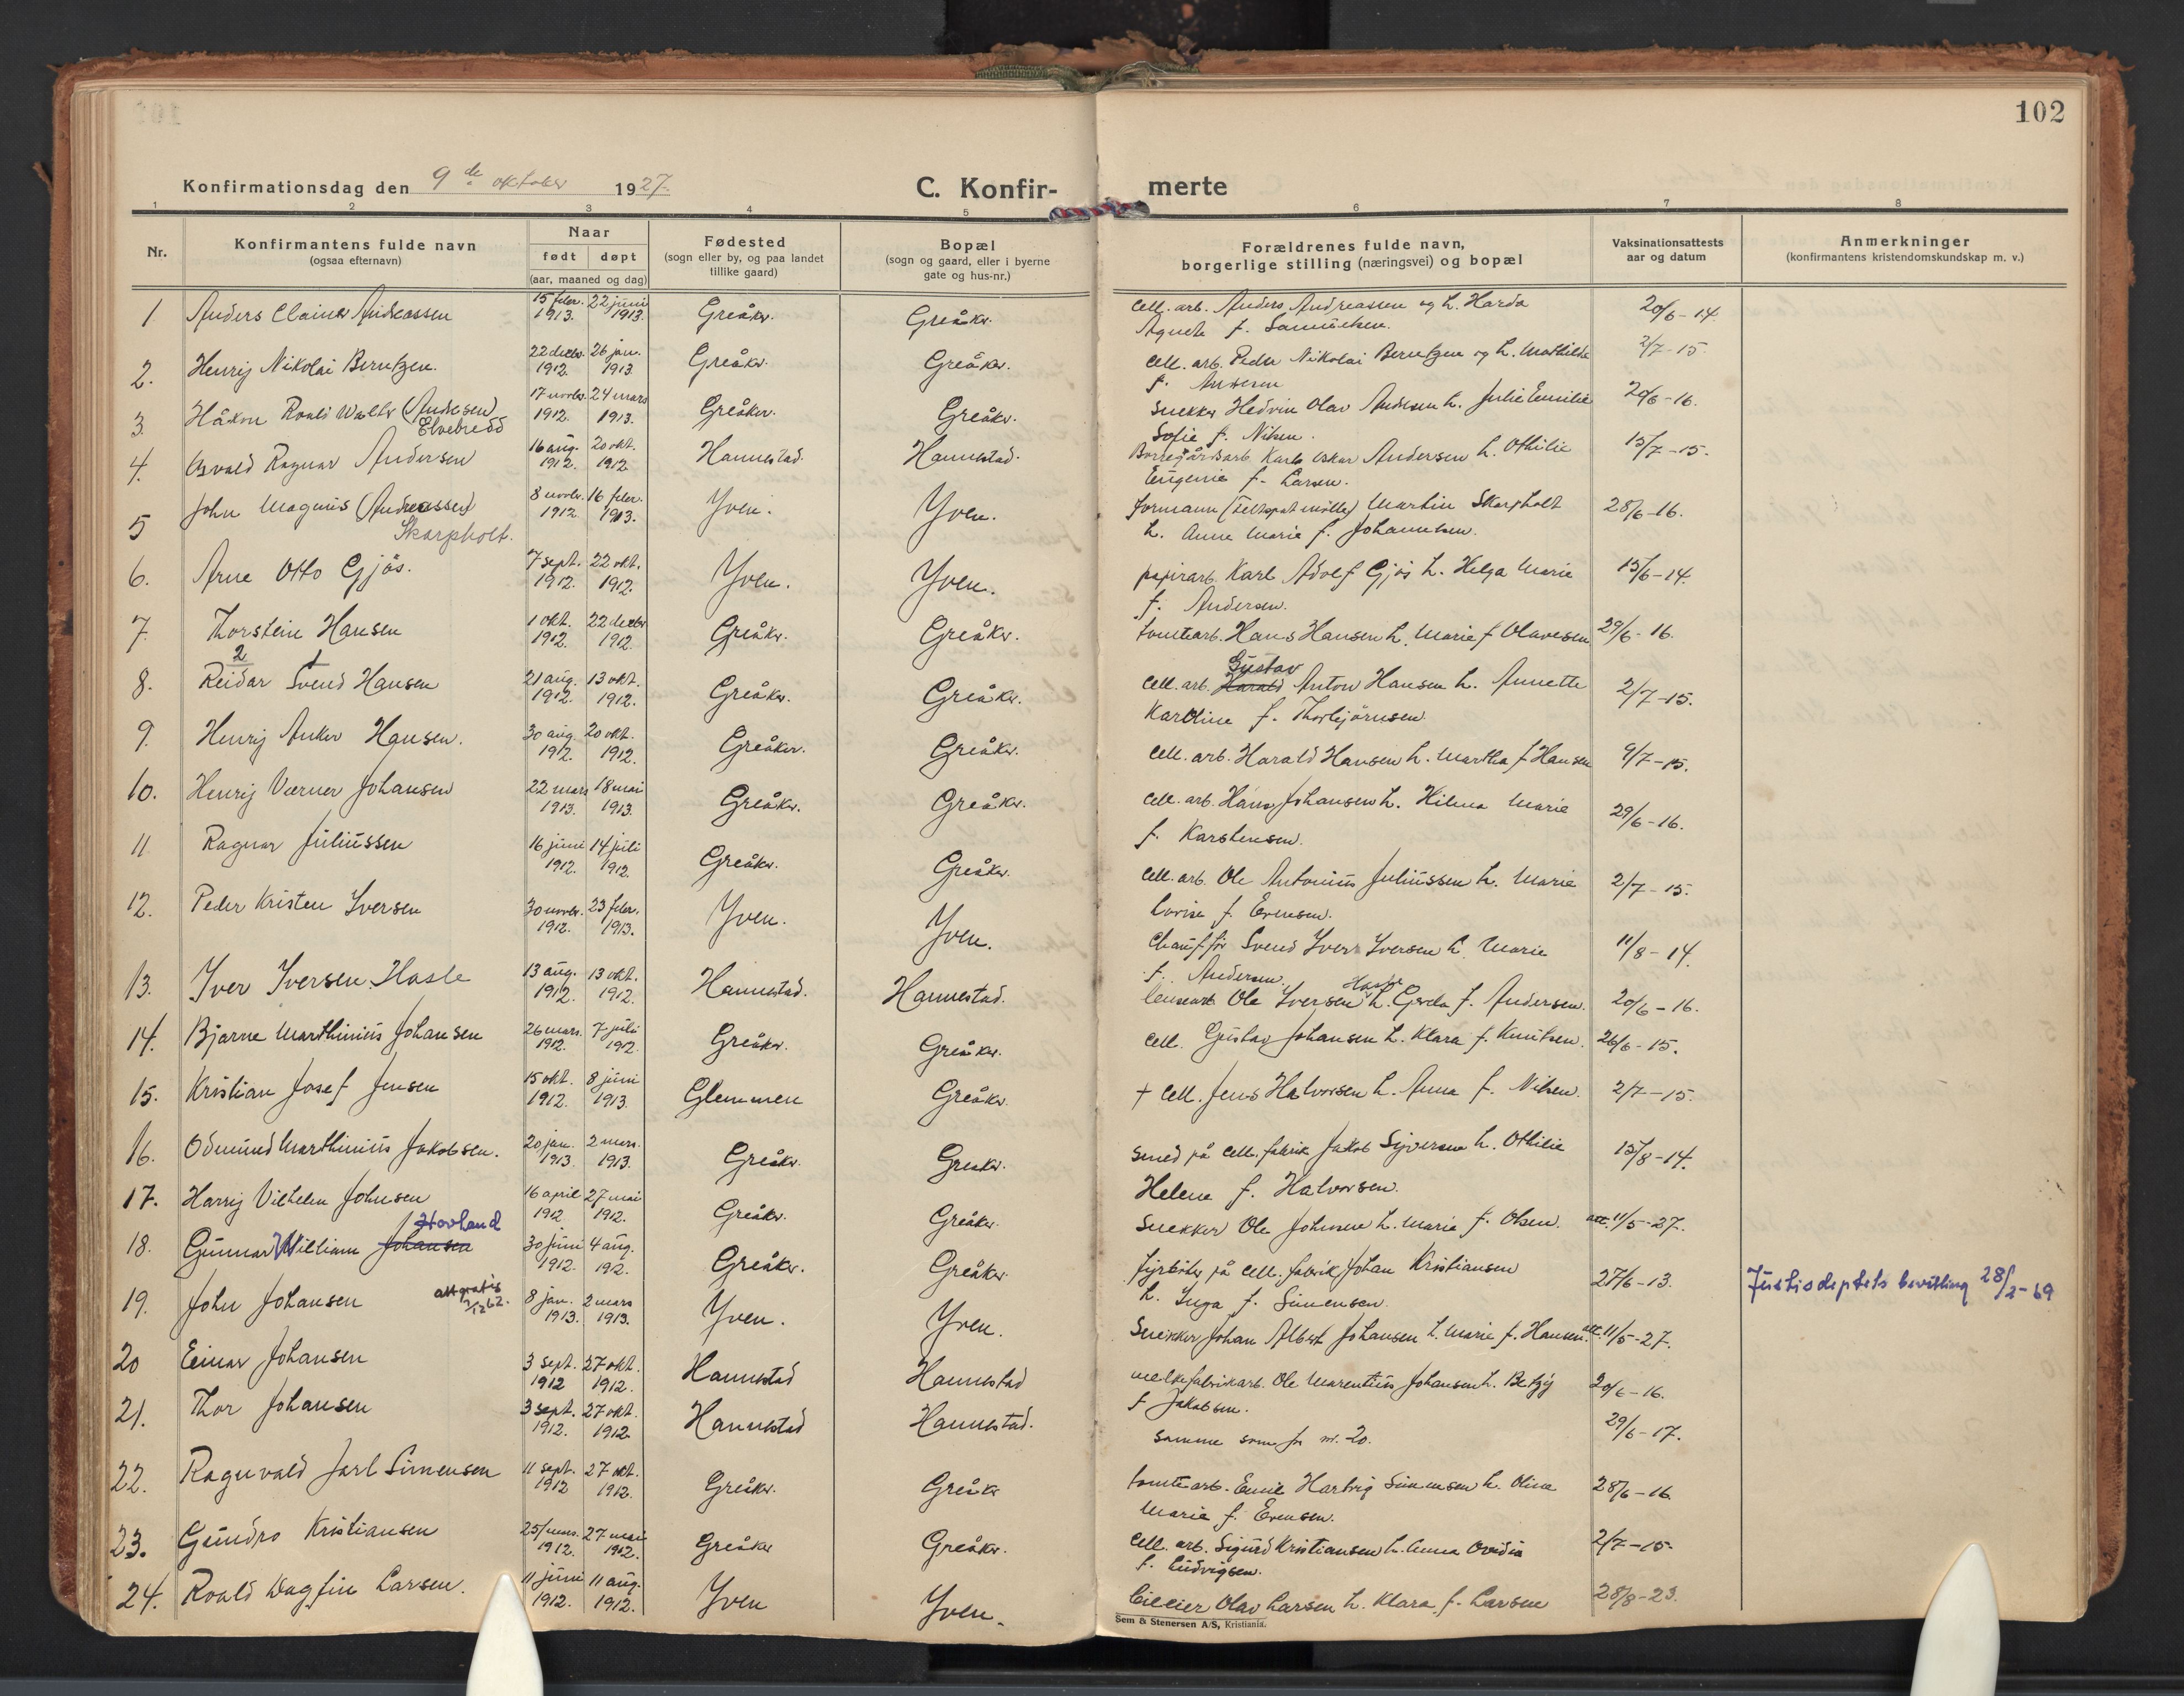 102
Konfirmationsdag den 9de oktober 1927.
C. Konfir- merte
1 2 3 4 5 6 7 8
Nr.
Konfirmantens fulde navn
(ogsaa efternavn)
Naar
født døpt
(aar, maaned og dag)
Fødested
(sogn eller by, og paa landet
tillike gaard)
Bopæl
(sogn og gaard, eller i byerne
gate og hus-nr.)
Forældrenes fulde navn,
borgerlige stilling (næringsvei) og bopæl
Vaksinationsattests
aar og datum
Anmerkninger
(konfirmantens kristendomskundskap m. v.)
1 Anders Andreassen 15 febr. 1913. 22 juni 1913. Greåker. Greåker. Cell. arb. Anders Andreassen og h. Harda 20/6-14.
Agnete f. Samuelsen.
2. Henrij Nikolai Berntzen. 22 decbr. 1912. 26 jan. 1913. Greåker. Greåker. Cell. arb. Peder Nikolai Berntzen og h. Mathilde 2/7-15.
f. Andersen
3. Håkon Roald Walter (Andersen) 17 novbr. 1912. 24 mars 1913. Greåker. Greåker. Snekker Hedvin Olav Andersen h. Julie Emilie 20/6-16.
Elvebredd Sofie f. Nilsen.
4. Osvald Ragnar Andersen 16 aug. 1912. 20 okt. 1912. Hannestad. Hannestad. Borregårdsarb. Karl Oskar Andersen h. Othilie 15/7-15.
Eugenie f. Larsen.
5 John Magnus (Andreassen) 8 novbr. 1912 16 febr. 1913. Yven. Yven. Formann (Feltspatmölle) Martin Skarpholt 28/6-16.
Skarpholt. h. Anne Marie f. Johannesen.
6. Arne Otto Gjös. 7 sept. 1912. 22 okt. 1912. Yven. Yven. papirarb. Karl Adolf Gjös h. Helga Marie 15/6-14.
f. Andersen.
7. Thorstein Hansen 1 okt. 1912. 22 decbr 1912. Greåker. Greåker. tomtearb. Hans Hansen h. Marie f Olavesen 29/6-16.
2 1 Gustav
8. Reidar Svend Hansen 21 aug. 1912. 13 okt. 1912. Greåker. Greåker. Cell. arb. Harald Anton Hansen h. Annette 2/7-15.
Karoline f. Thorbjörnsen.
9. Henrij Anker Hansen. 30 aug. 1912. 20 okt. 1912. Greåker. Greåker. Cell. arb. Harald Hansen h. Martha f Hansen 9/7-15.
10. Henrij Værner Johansen 22 mars 1913. 18 mai 1913. Greåker. Greåker. Cell. arb. Hans Johansen h. Hilma Marie 29/6-16.
f. Karstensen.
11 Ragnar Juliussen 16 juni 1912. 14 juli 1912. Greåker. Greåker. Cell. arb. Ole Antonius Juliussen h. Marie 2/7-15.
Lovise f. Evensen.
12. Peder Kristen Iversen 30 novbr. 1912. 23 febr. 1913. Yven. Yven. Chaufför Svend Iver Iversen h. Marie 11/8-14.
f. Andersen.
Hasle
13. Iver Iversen Hasle 13 aug. 1912. 13 okt. 1912. Hannestad. Hannestad. Ole Iversen h. Gerda f. Andersen. 20/6-16.
14. Bjarne Marthinius Johansen 26 mars. 1912. 7 juli 1912 Greåker. Greåker. Cell. Gustav Johansen h. Klara f. Knutsen. 26/6-15.
15. Kristian Josef Jensen 15 okt. 1912. 8 juni 1913. Glemmen Greåker. + Cell. Jens Halvorsen h. Anna f. Nilsen. 2/7-15.
16. Odmund Marthinius Jakobsen. 20 jan. 1913. 2 mars. 1913. Greåker. Greåker. Smed på Cell. fabrik Jakob Syversen h. Othilie 15/8-14.
Helene f. Halvorsen.
17. Harrij Vilhelm Johnsen 16 april 1912 27 mai 1912. Greåker. Greåker. Snekker Ole Johnsen h. Marie f. Olsen. att. 11/5-27.
Hovland
18. Gunnar William Johansen 30 juni 1912. 4 aug. 1912. Greåker. Greåker. fyrböter på Cell. fabrik Johan Kristiansen 27/6-13. Justisdeptets bevilling 28/2-69
h. Inga f. Simensen.
19. John Johansen att gratis 7/12 62. 8 jan. 1913. 2 mars 1913. Yven. Yven. Snekker Johan Albert Johansen h. Marie f. Hansen. att. 11/5-27.
20 Einar Johansen 3 sept. 1912 27 okt. 1912. Hannestad Hannestad melkefabrikarb. Ole Marentius Johansen h. Betzy 20/6-16.
f Jakobsen.
21. Thor Johansen 3 sept. 1912. 27 okt. 1912. Hannestad Hannestad. Samme som for nr. 20. 29/6-17.
22. Ragnvald Jarl Simensen 11 sept. 1912 27 okt. 1912. Greåker. Greåker tomtearb. Emil Hartvig Simensen h. Oline 28/6-16.
Marie f. Evensen.
23. Gundro Kristiansen 25 mars. 1912. 27 mai 1912. Greåker Greåker. Cell. arb. Sigurd Kristiansen h. Anna Ovidia 2/7-15
f. Ludvigsen.
24. Roald Dagfin Larsen. 11 juni 1912. 11 aug. 1912. Yven Yven. Olav Larsen h. Klara f. Larsen 28/8-23.
Sem & Stenersen A/S, Kristiania.